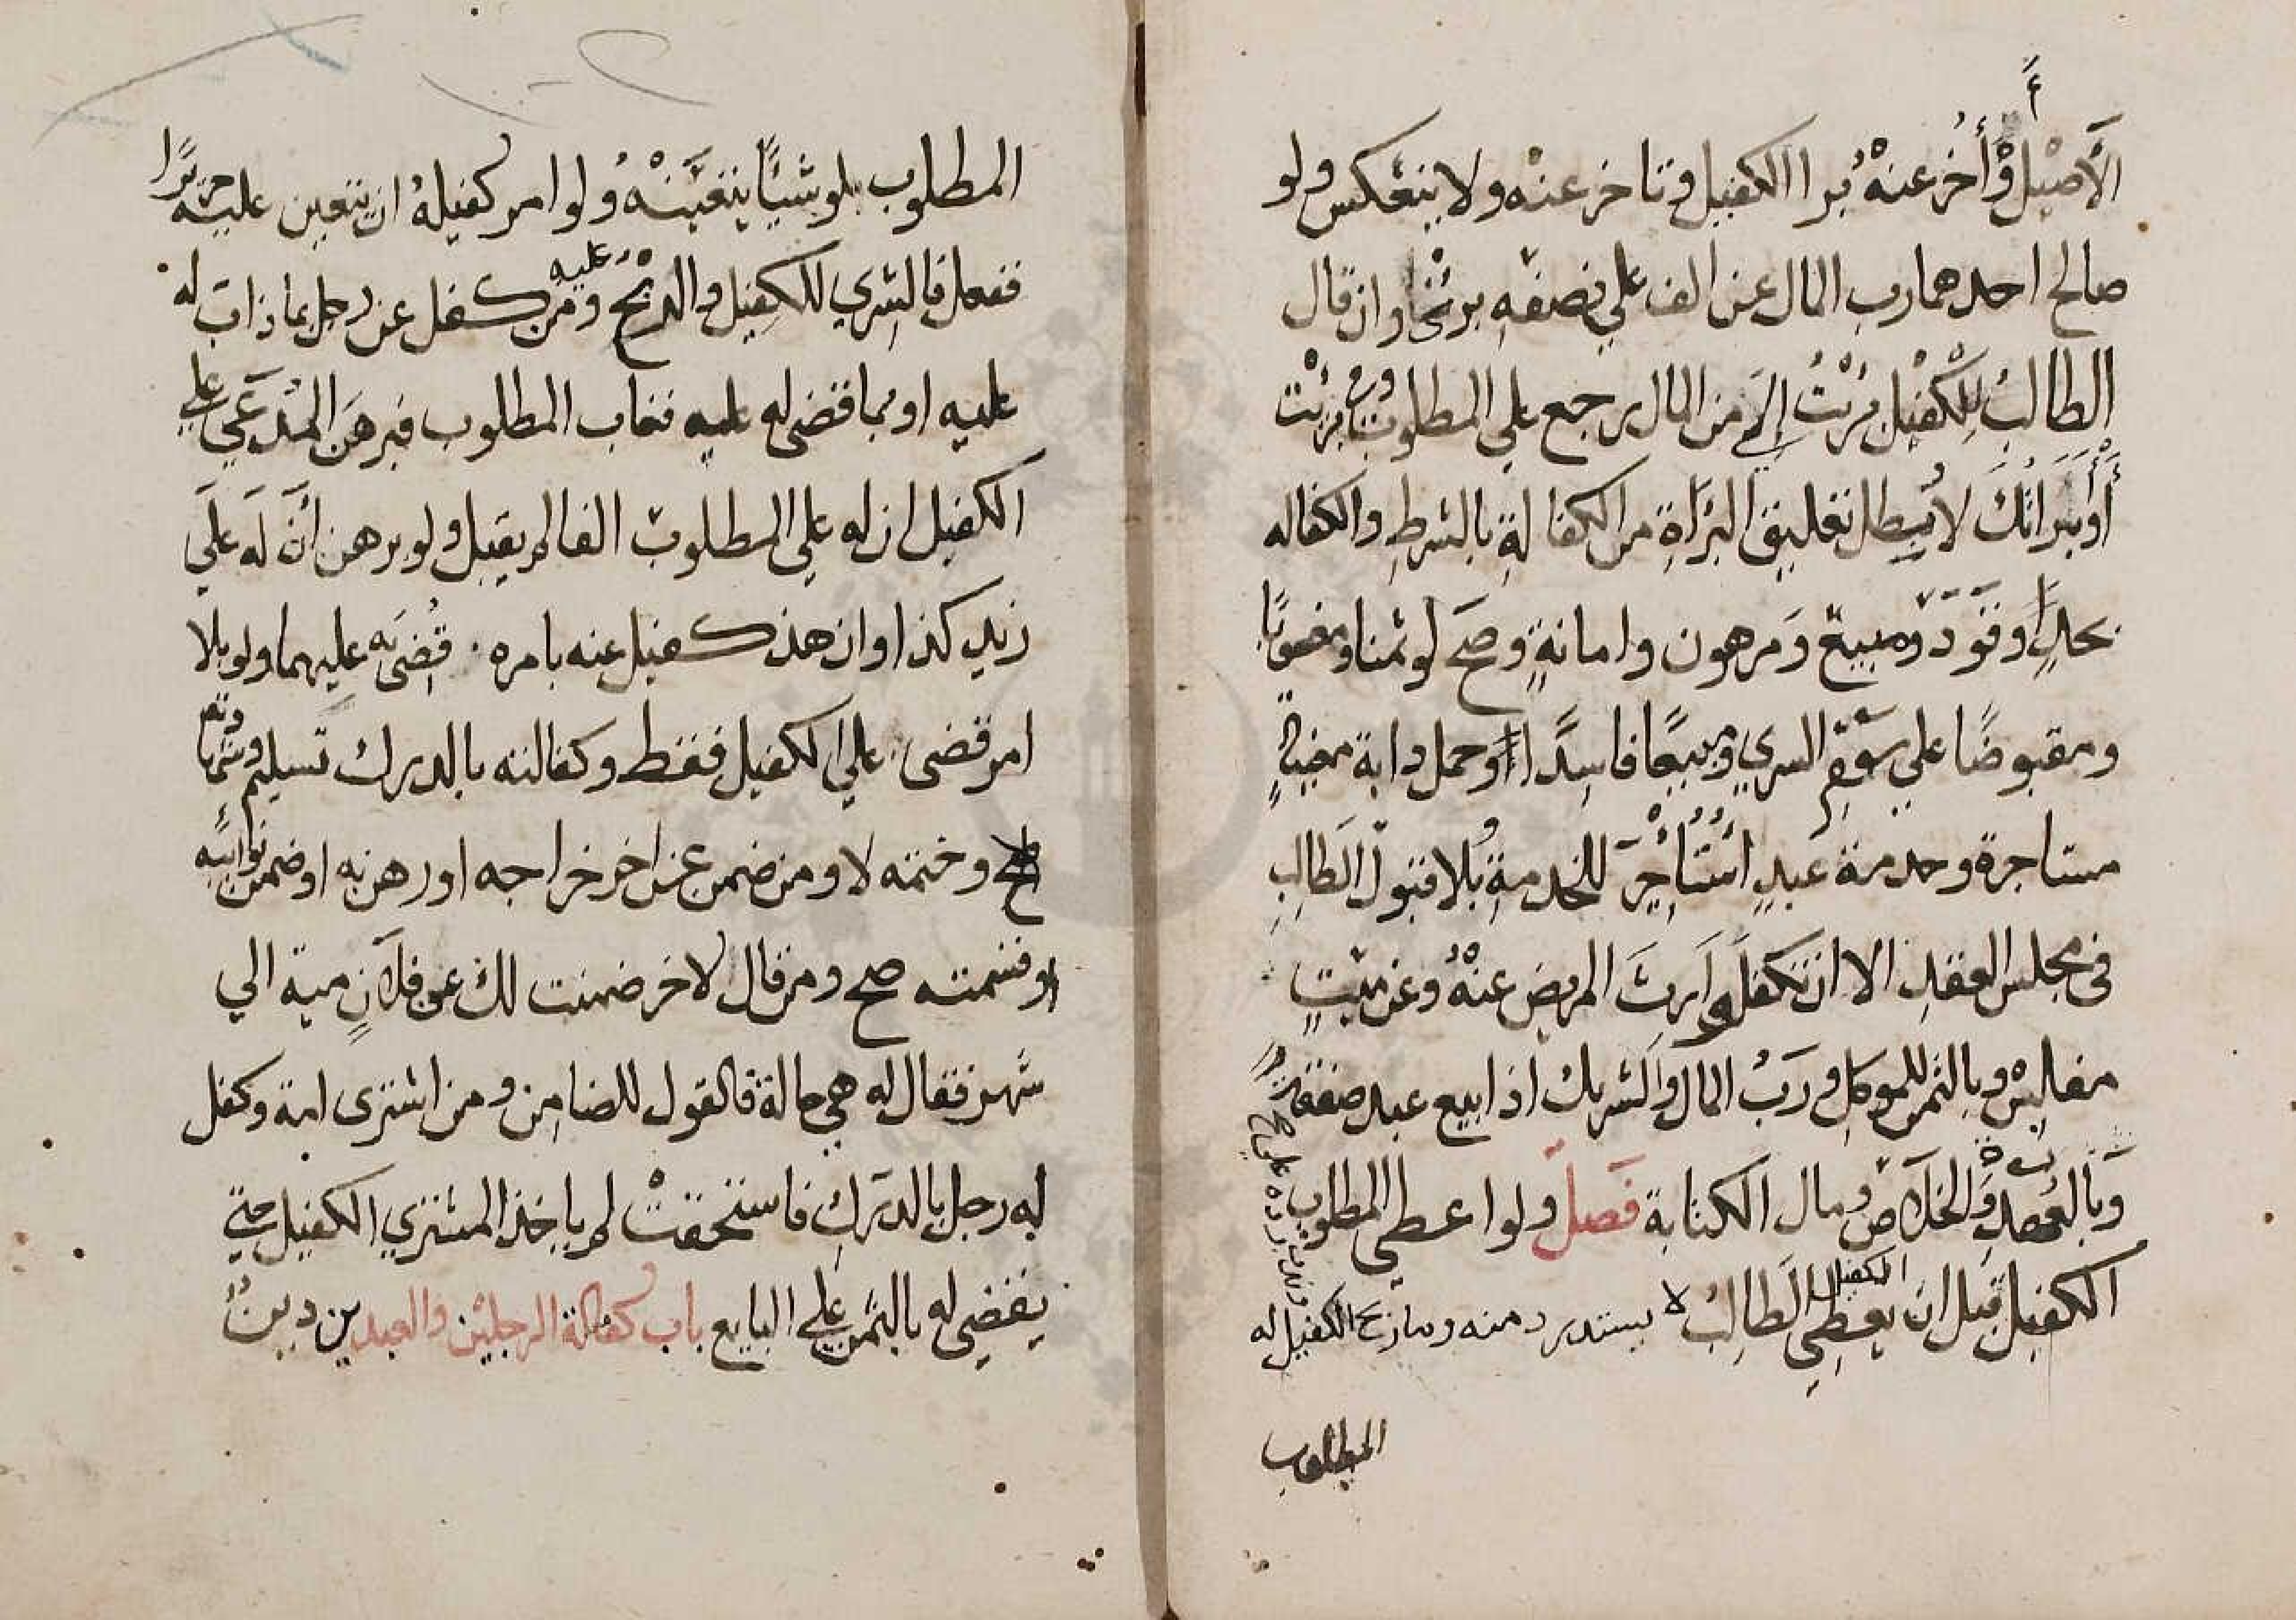 الاصيل او أخر عنه برا الكفيل وتاخر عنه ولا ينعكس ولو
صالح احدهما رب المال عن الف علي نصفه برئا وان قال
الطالب للكفيل برئت إلي من المال يرجع علي المطلوب وفي برئت
أو أبراتك لا يبطل تعليق البراة من الكفالة بالشرط والكفاله
بحد وقود ومبيع ومرهون وامانة وصح لو ثمنا ومغصوبا
ومقبوضا علي سوم الشري ومبيعا فاسدا وحمل دابة معينة
مستاجرة وخدمة عبد استأجر للخدمة بلا قبول الطالب
في مجلس العقد الا ان تكفل وارث المريض عنه وعن ميت
مفلس وبالثمن للموكل ورب المال والشريك اذا بيع عبد صفقة
وبالعهدة والخلاص ومال الكتابة فصل ولو اعطي المطلوب
الكفيل قبل ان يعطي الكفيل الطالب لا يسترد منه وما ربح الكفيل له
المطلوب
المطلوب بلو شيئا يتعينه ولو امر كفيله ان يتعين عليه حريرا
ففعل فالشري للكفيل والربح عليه ومن كفل عن رجل بما ذاب له
عليه او بما قضي له عليه فغاب المطلوب فبرهن المدعي علي
الكفيل ان له علي المطلوب الفا لم يقبل ولو برهن أن له علي
زيد كذا وان هذ كفيل عنه بامره قضي به عليهما ولو بلا
امر قضي علي الكفيل فقط وكفالته بالدرك تسليم وشهادته
وختمه لا ومن ضمن عن اخر خراجه او رهن به او ضمن نوائبه
او قسمته صح ومن قال لاخر ضمنت لك عن فلان مية الي
شهر فقال له هي حالة فالقول للضامن ومن اشتري امة وكفل
له رجل بالدرك فاستحقت لم ياخذ المشتري الكفيل حتي
يقضي له بالثمن علي البايع باب كفالة الرجلين والعبدين دين